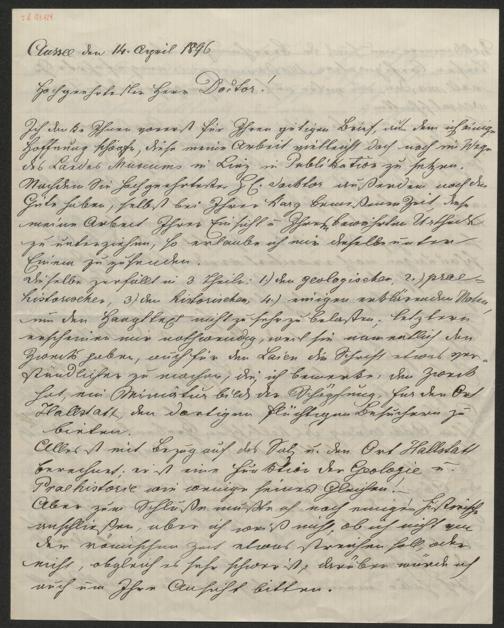 Aussee den 14. April 1896
Hochgeehrtester Herr Doctor!
Ich danke Ihnen vorerst für Ihren gütigen Brief, aus dem ich einige
Hoffnung schöpfe, diese meine Arbeit vielleicht doch noch im Wege
des Landes Museums in Linz in Publikation zu setzen.
Nachdem Sie hochgeehrtester H. Doktor außerdem noch die
Güte haben, selbst bei Ihrer karg bemessenen Zeit, diese
meine Arbeit Ihrer Einsicht u. Ihrem bewährten Urtheile
zu unterziehen, so erlaube ich mir dieselbe unter
Einem zuzusenden.
Dieselbe zerfällt in 3 Theile: 1.) den geologischen, 2.) prae-
historischen, 3.) den historischen, 4.) einigen erklärenden Noten,
um den Haupttext nicht zu sehr zu belasten; letztere
erscheinen mir nothwendig, weil sie namentlich den
Zweck haben, auch für den Laien die Schrift etwas ver-
ständlicher zu machen, die, ich bemerke, den Zweck
hat, ein Miniaturbild der Schöpfung, für den Ort
Hallstatt, den dortigen flüchtigen Besuchern zu
bieten.
Alles ist mit Bezug auf das Salz u. den Ort Hallstatt
berechnet, er ist eine Funktion der Geologie u.
Praehistorie wie wenige seines Gleichen!
Aber zum Schlusse müßte ich noch einiges Historische
anschließen, aber ich weiß nicht, ob ich nicht von
der römischen Zeit etwas streichen soll oder
nicht, obgleich es sehr schwer ist; darüber würde ich
auch um Ihre Ansicht bitten.